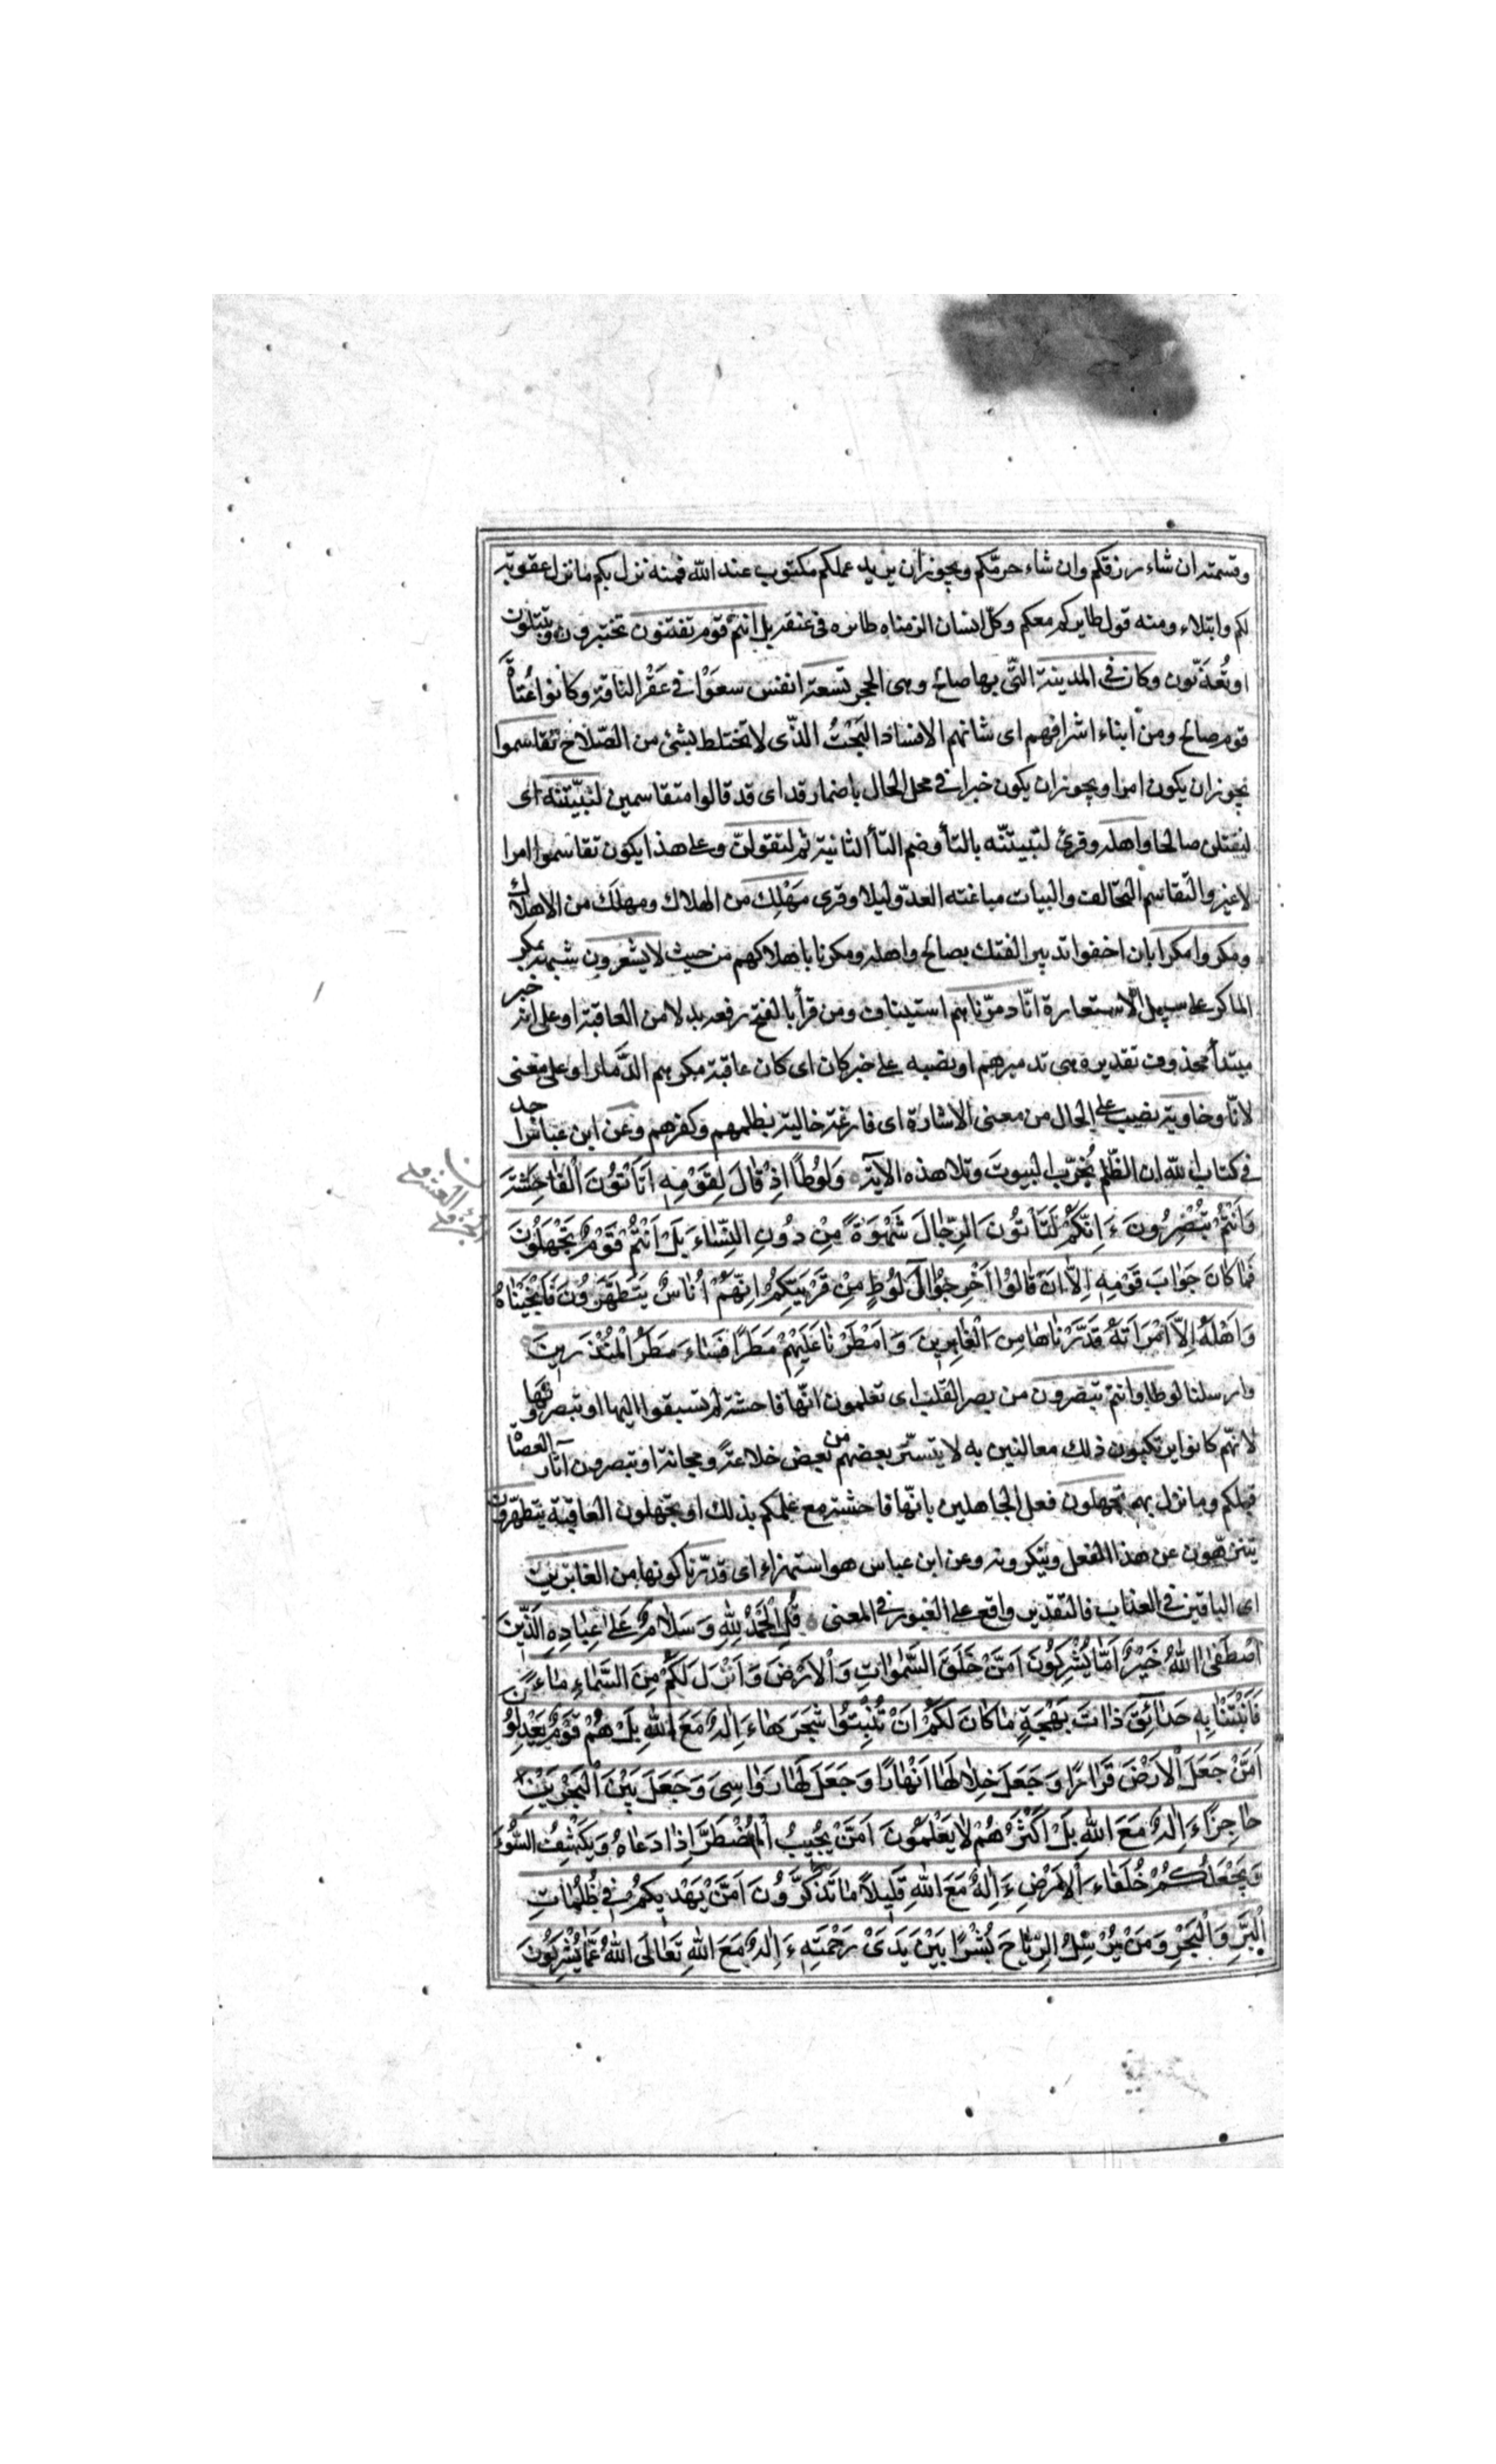 وقسمته ان شاء رزقكم وان شاء حرمّكم ويجوز ان يريد عملكم مكتوب عند الله فمنه نزل بكم ما نزل عقوبة
لكم وابتلاء ومنه قوله طايركم معكم وكلّ انسان الزمناه طائره فى عنقه بل انتم قوم تفتنون تختبرون وتبتلون
او تُعذّبون وكان فى المدينة التّى بها صالح وهى الحجر تسعة انفس سعَوْا فى عَقْر الناقة وكانوا عُتاةً
قوم صالح ومن ابناء اشرافهم اى شانهم الافساد البَحْتُ الذّى لا يختلط بشئ من الصّلاح تقاسموا
يجوز ان يكون امرا ويجوز ان يكون خبرا فى محل الحال باضمار قد اى قد قالوا متقاسمين لنبيّتنّه اى
لنقتلن صالحا واهله وقرئ لتبيتنّه بالتاء وضم التاء الثانية ثم لتقولنّ وعلى هذا يكون تقاسموا امرا
لا غير والتّقاسم التّحالف والبيات مباغتة العدّو ليلا وقرى مَهْلِك من الهلاك ومهلَك من الاهلاك
ومكروا مكرا بان اخفوا تدبير الفتك بصالح واهله ومكرنا باهلاكهم من حيث لا يشعرون شبه بمكر
الماكر على سبيل الاستعارة انّا دمرّناهم استيناف ومن قرأ بالفتح رفعه بدلا من العاقبة او على انه خبر
مبتدأ محذوف تقديره هى تدميرهم او نصبه على خبر كان اى كان عاقبة مكرهم الدَّمار او على معنى
لانّا وخاوية نصب على الحال من معنى الاشارة اى فارغة خالية بظلمهم وكفرهم وعن ابن عباس اجد
فى كتاب الله ان الظّلم يُخرّب البيوت وتلا هذه الآية وَلُوطًا اِذْ قالَ لِقَوْمِهِ اَتَأْتُونَ الْفاحِشَةَ
وَاَنْتُمْ تُبْصِرُونَ ءَاِنَّكُمْ لَتَأتُونَ الرِّجالَ شَهْوَةً مِنْ دُونِ النِّساءِ بَلْ اَنْتُمْ قَوْمٌ تَجْهَلُونَ
فَما كانَ جَوابَ قَوْمِهِ اِلاّ اَنْ قالُوا اَخْرِجُوا آلَ لُوطٍ مِنْ قَرْيَتِكُمْ اِنَّهُمْ اُناسٌ يَتَطَهَّرُونَ فَاَنْجَيْناهُ
وَاَهْلَهُ اِلاّ امْرَاَتَهُ قَدَّرْناها مِنَ الْغابِرِينَ وَاَمْطَرْنا عَلَيْهِمْ مَطَرًا فَساءَ مَطَرُ الْمُنْذَرِينَ
وارسلنا لوطا وانتم تبصرون من بصر القلب اى تعلمون انّها فاحشة لم تسبقوا اليها او تبصرونها
لانّهم كانوا يرتكبون ذلك معالنين به لا يتستّر بعضهم من بعض خلاعةً ومجانة او تبصرون آثار العصاة
قبلكم وما نزل بهم تجهلون فعل الجاهلين بانّها فاحشة مع علمكم بذلك او تجهلون العاقبة يتطهّرون
يتنزّهون عن هذا الفعل وينكرونه وعن ابن عباس هو استهزاء اى قدّرنا كونها من الغابرين
اى الباقين فى العذاب فالتقدير واقع على الغبور فى المعنى قُلِ الْحَمْدُ لِلّهِ وَسَلامٌ عَلى عِبادِهِ الَّذِينَ
اصْطَفَى اللهُ خَيْرٌ اَمّا يُشْرِكُونَ اَمَّنْ خَلَقَ السَّمواتِ وَالْاَرْضَ وَاَنْزَلَ لَكُمْ مِنَ السَّماءِ ماءً
فَاَنْبَتْنا بِهِ حَدائِقَ ذاتَ بَهْجَةٍ ما كانَ لَكُمْ اَنْ تُنْبِتُوا شَجَرَها ءَاِلهٌ مَعَ اللهِ بَلْ هُمْ قَوْمٌ يَعْدِلُو
اَمَّنْ جَعَلَ الْاَرْضَ قَرارًا وَجَعَلَ خِلالَها اَنْهارًا وَجَعَلَ لَها رَواسِىَ وَجَعَلَ بَيْنَ الْبَحْرَيْنِ
حاجِزًا ءَاِلهٌ مَعَ اللهِ بَلْ اَكْثَرُهُمْ لا يَعْلَمُونَ اَمَّنْ يُجِيبُ الْمُضْطَرَّ اِذا دَعاهُ وَيَكْشِفُ السُّوءَ
وَيَجْعَلُكُمْ خُلَفاءَ الْاَرْضِ ءَاِلهٌ مَعَ اللهِ قَلِيلاً ما تَذَكَّرُونَ اَمَّنْ يَهْدِيكُمْ فِى ظُلُماتِ
الْبَرِّ وَالْبَحْرِ وَمَنْ يُرْسِلُ الرِّياحَ بُشْرًا بَيْنَ يَدَىْ رَحْمَتِهِ ءَاِلهٌ مَعَ اللهِ تَعالَى اللهُ عَمّا يُشْرِكُونَ